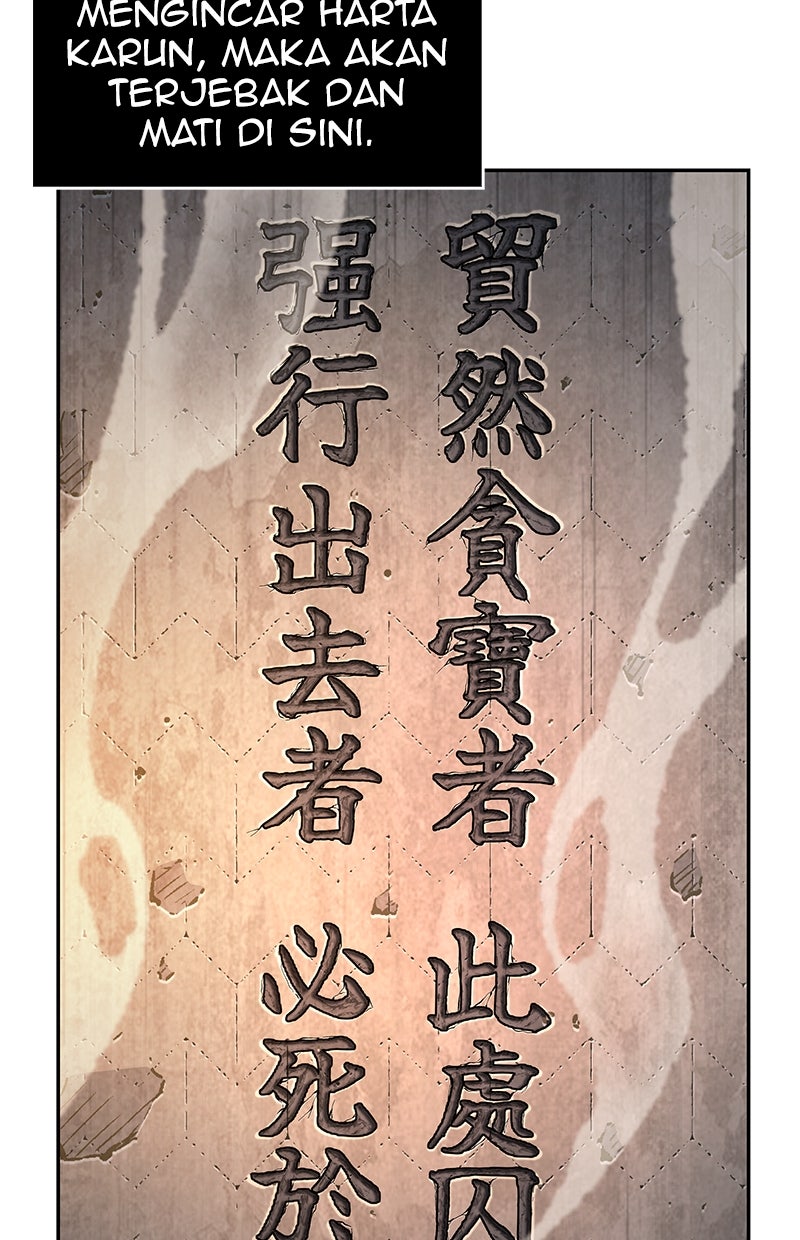 MENGINCAR HARTA
KARUN, MAKA AKAN
TERJEBAK DAN
MATI DI SINI.
貿然貪寶者 此處囚
强行出去者 必死於